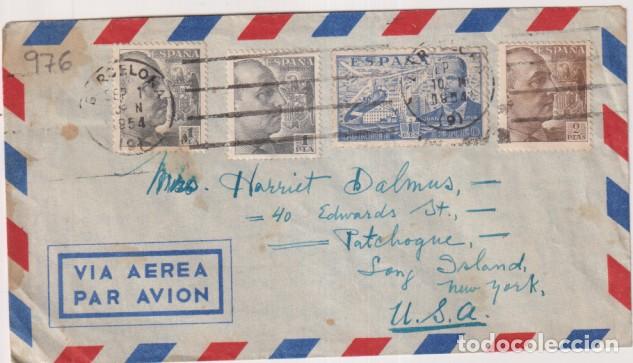 976
ESPAÑA
ESPAÑA
ESPAÑA
ESPAÑA
BARCELONA
1954
1 PTA
2 PTAS
Mrs. Harriet Dalmus, —
— 40 Edwards St., —
— Patchogue, —
Long Island,
New York,
U.S.A.
VIA AEREA
PAR AVION
todocoleccion